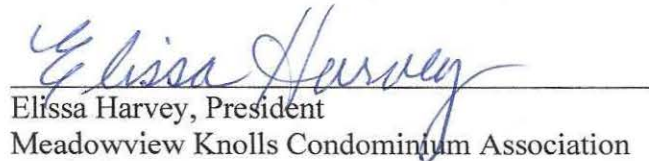 Elissa Harvey
Elissa Harvey, President
Meadowview Knolls Condominium Association